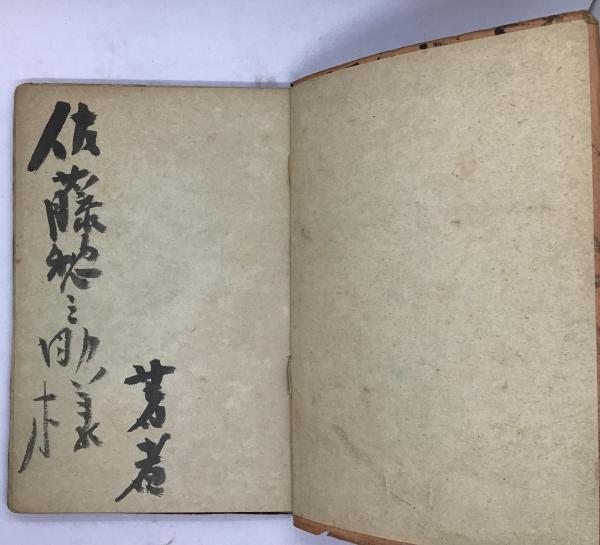 佐藤惣之助様
著者